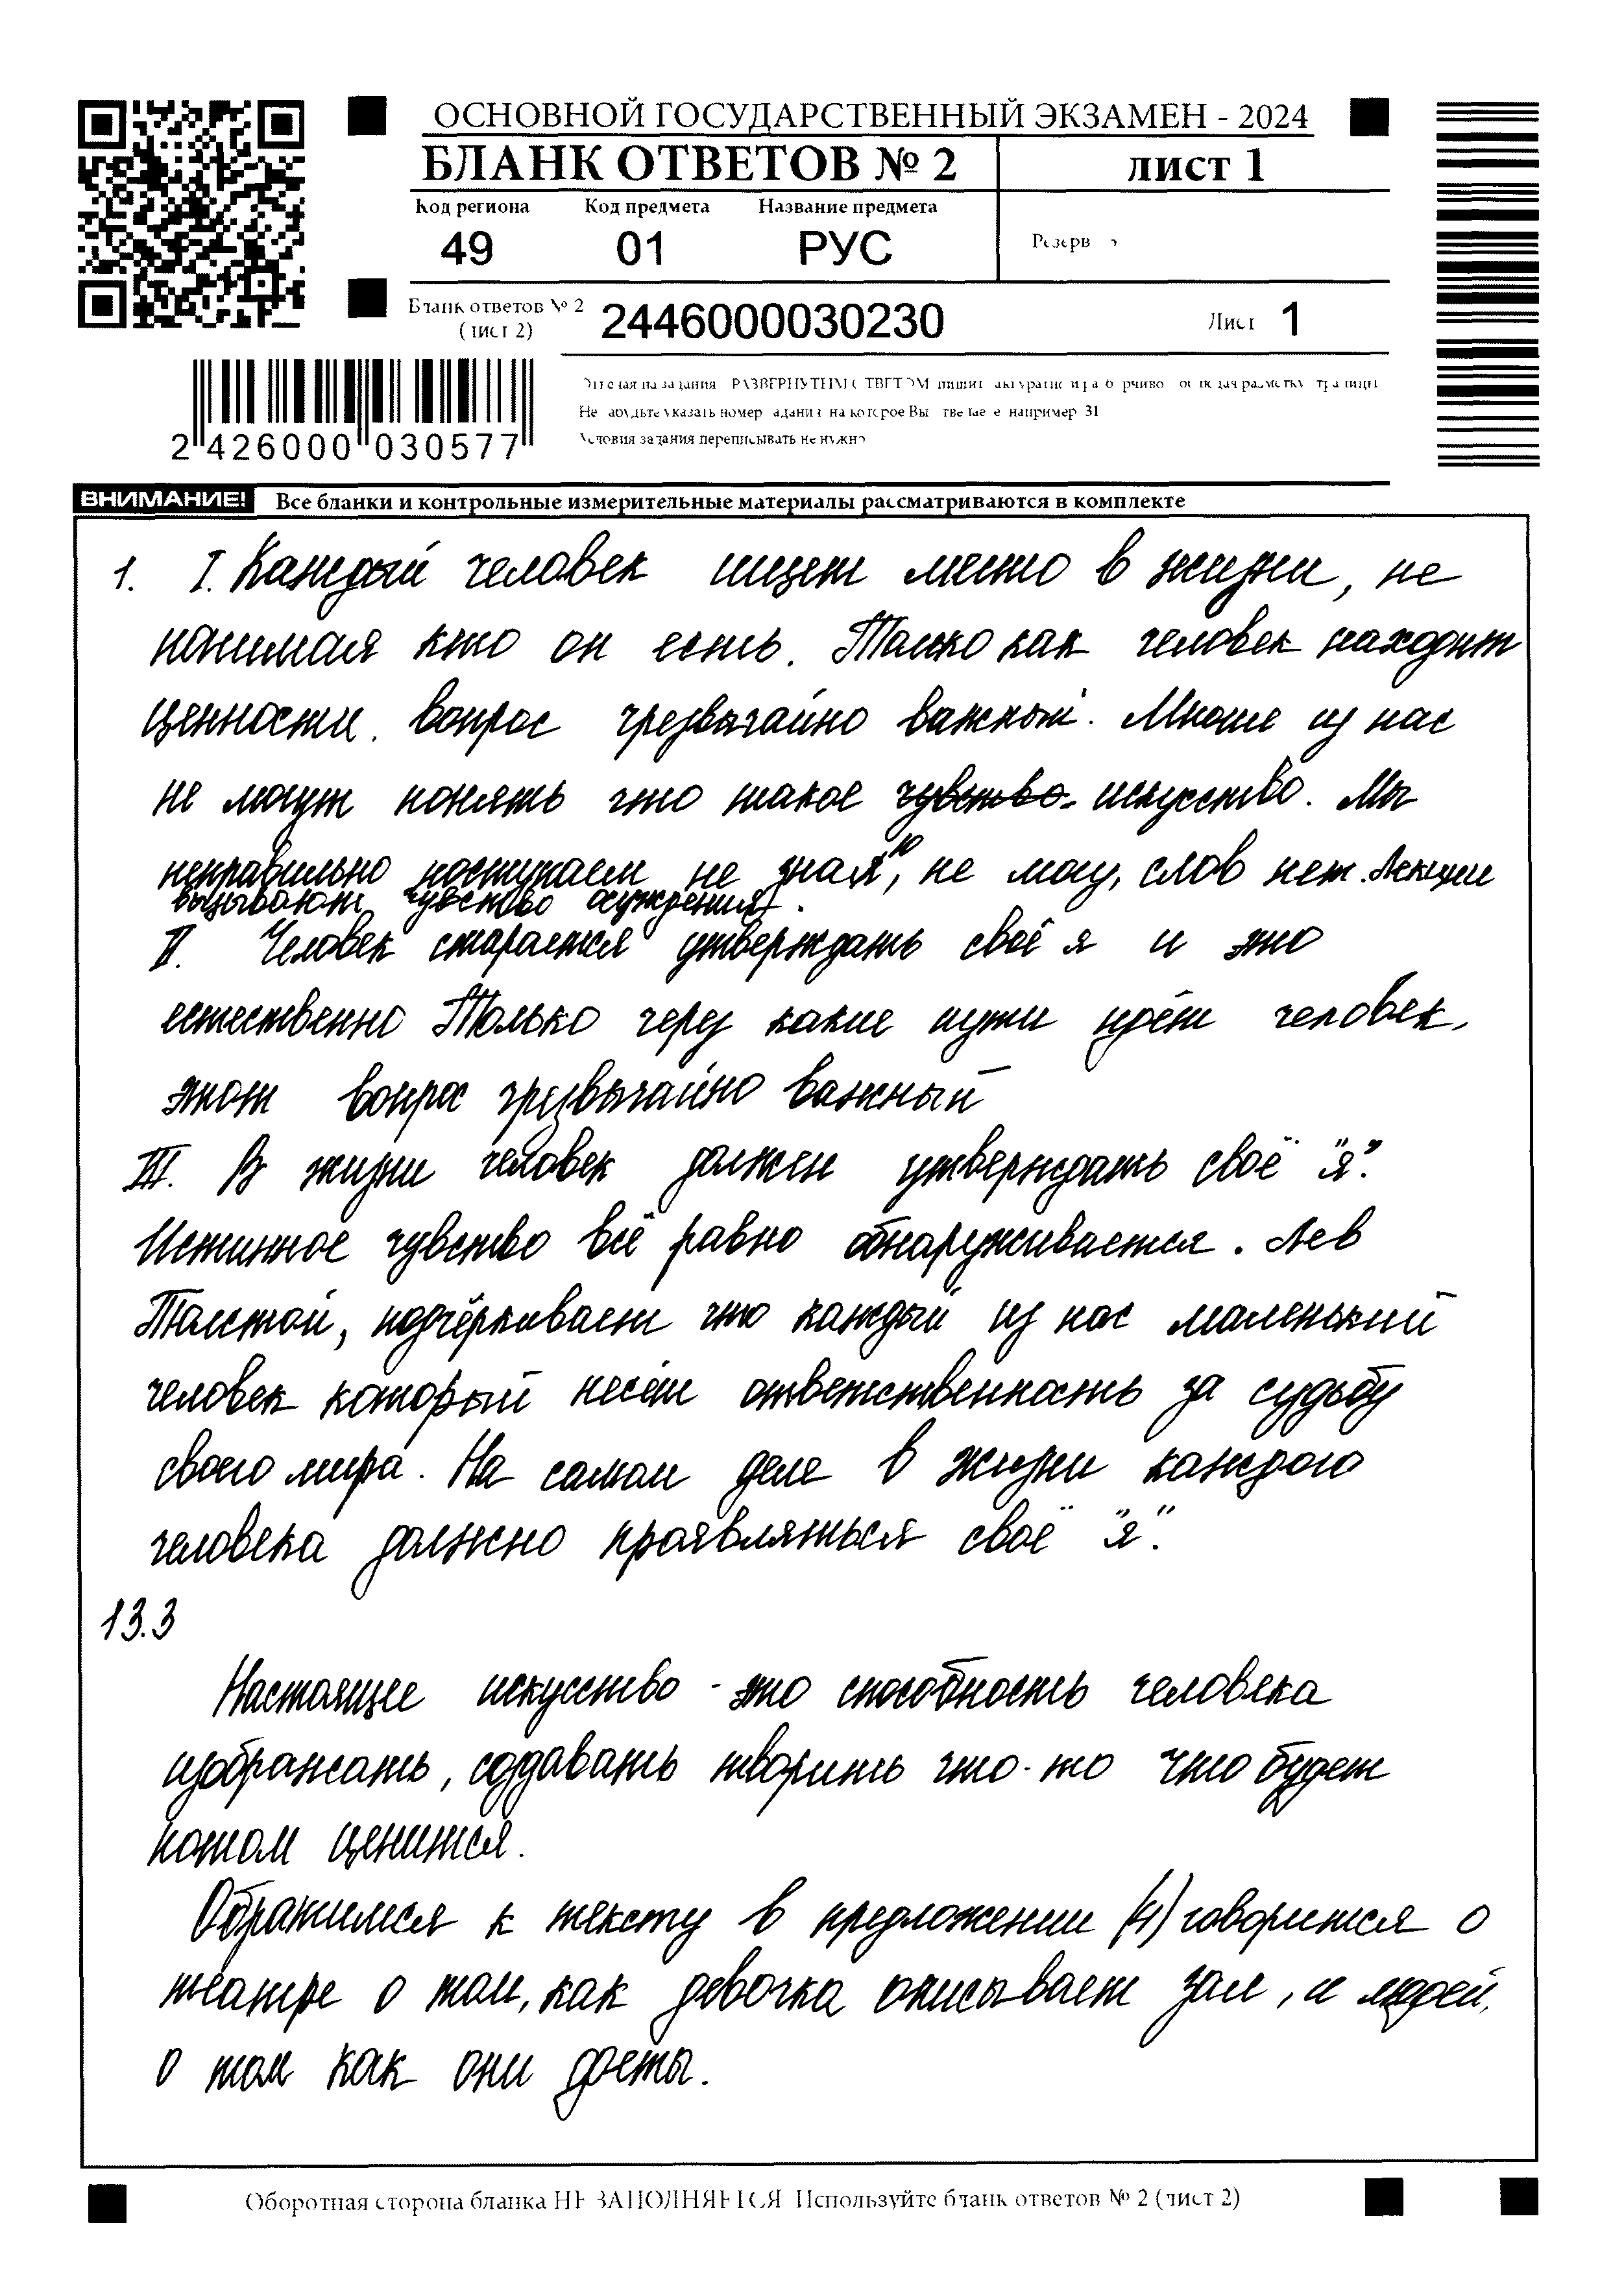 ОСНОВНОЙ ГОСУДАРСТВЕННЫЙ ЭКЗАМЕН - 2024
БЛАНК ОТВЕТОВ № 2
ЛИСТ 1
Код региона Код предмета Название предмета
49 01 РУС
Резерв
Бланк ответов № 2
(лист 2)
2446000030230
Лист 1
2 426000 030577
Отвечая на задания с РАЗВЕРНУТЫМ ОТВЕТОМ пишите аккуратно и разборчиво, соблюдая разметку страницы
Не забудьте указать номер задания на которое Вы отвечаете например 31
Условия задания переписывать не нужно
ВНИМАНИЕ! Все бланки и контрольные измерительные материалы рассматриваются в комплекте
1. I. Каждый человек ищет место в жизни, не
понимая кто он есть. Только как человек находит
ценности. вопрос чрезвычайно важный. Многие из нас
не могут понять что такое чувство искусство. Мы
неправильно поступаем не зная", не могу, слов нет. Лекции
вызывают чувство осуждения.
II. Человек старается утверждать своё я и это
естественно Только через какие пути идёт человек.
этот вопрос чрезвычайно важный
III. В жизни человек должен утверждать своё "я".
Истинное чувство всё равно обнаруживается. Лев
Толстой, подчёркивает что каждый из нас маленький
человек который несёт ответственность за судьбу
своего мира. На самом деле в жизни каждого
человека должно проявляться своё "я".
13.3
Настоящее искусство - это способность человека
изображать, создавать творить что-то что будет
потом ценится.
Обратимся к тексту в предложении (4) говорится о
театре о том, как девочка описывает зал, и людей,
о том как они одеты.
Оборотная сторона бланка НЕ ЗАПОЛНЯЕТСЯ. Используйте бланк ответов № 2 (лист 2)